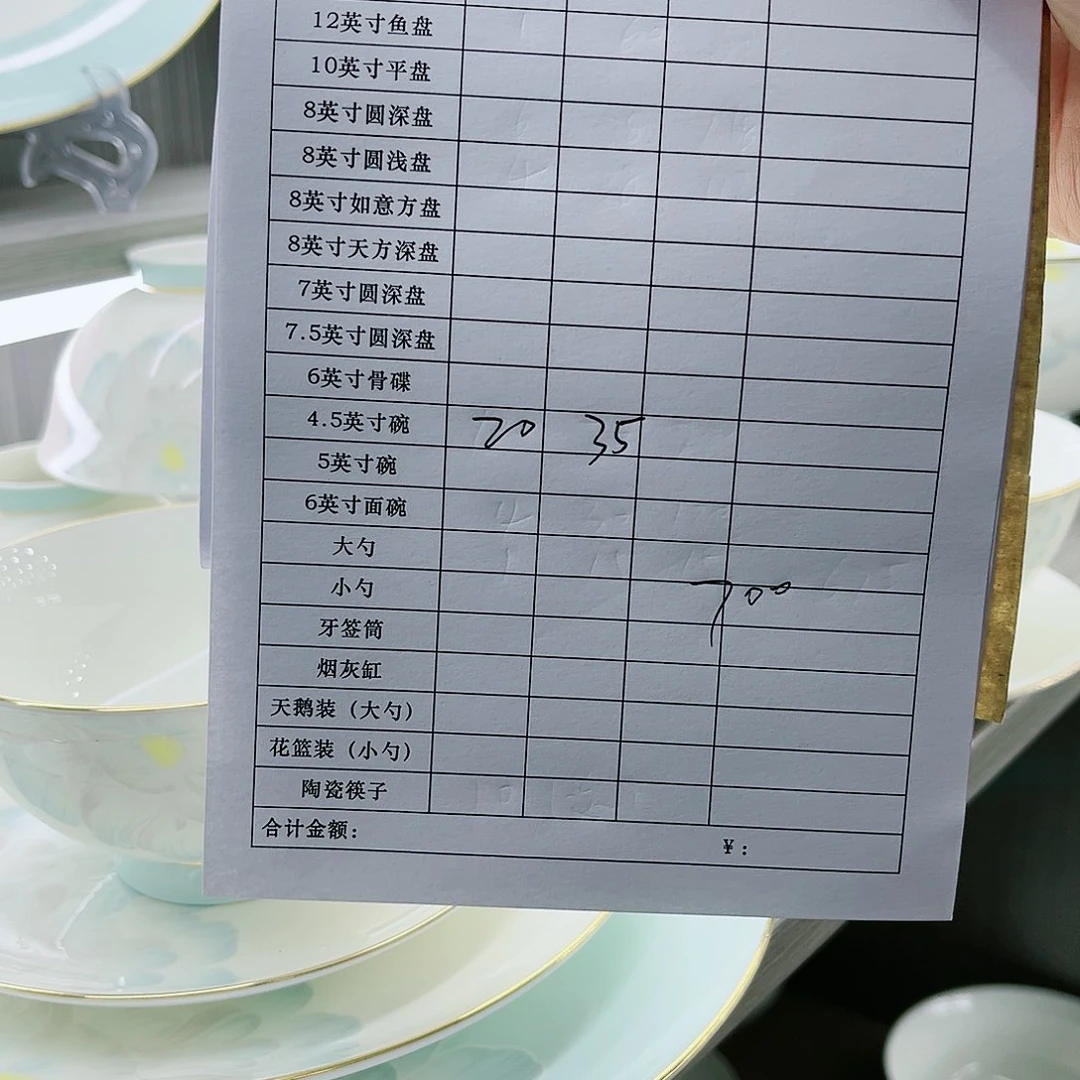 12英寸鱼盘
10英寸平盘
8英寸圆深盘
8英寸圆浅盘
8英寸如意方盘
8英寸天方深盘
7英寸圆深盘
7.5英寸圆深盘
6英寸骨碟
4.5英寸碗 20 35
5英寸碗
6英寸面碗
大勺
小勺 700
牙签筒
烟灰缸
天鹅装（大勺）
花篮装（小勺）
陶瓷筷子
合计金额： ¥：